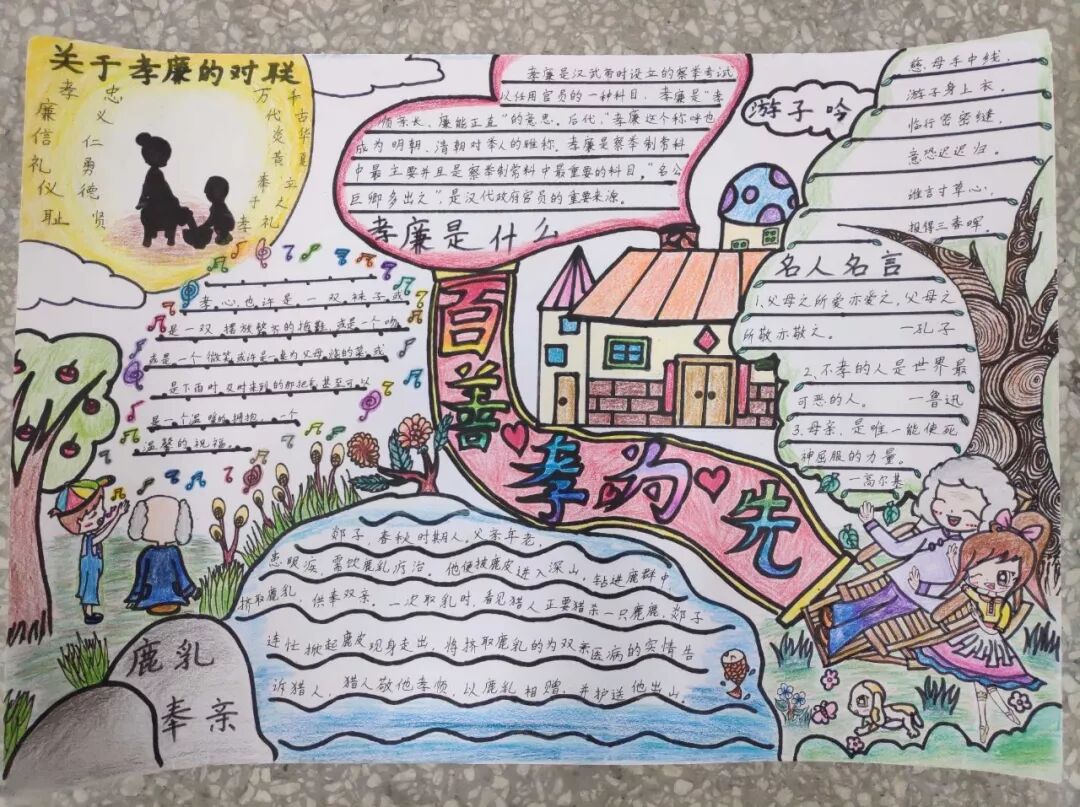 关于孝廉的对联
孝廉信礼仪耻
忠义仁勇德贤
万代炎黄奉子孝
千古华夏立人礼
孝廉是汉武帝时设立的察举考试
以任用官员的一种科目，孝廉是“孝
顺亲长、廉能正直”的意思。后代，“孝廉这个称呼也
成为明朝、清朝对举人的雅称，孝廉是察举制常科
中最主要并且是察举制常科中最重要的科目。“名公
巨卿多出之”，是汉代政府官员的重要来源。
孝廉是什么
游子吟
慈母手中线，
游子身上衣。
临行密密缝，
意恐迟迟归。
谁言寸草心，
报得三春晖。
名人名言
1.父母之所爱亦爱之，父母之
所敬亦敬之。 —孔子
2.不孝的人是世界最
可恶的人。 —鲁迅
3.母亲，是唯一能使死
神屈服的力量。
—高尔基
百善孝为先
孝心也许是一双袜子或
是一双摆放整齐的拖鞋，或是一个吻
或是一个微笑或许是一桌为父母 的菜，或
是下雨时，及时来到的那把 甚至可以
是一个温暖的拥抱，一个
温馨的祝福。
郯子，春秋时期人，父亲年老，
患眼疾，需饮鹿乳疗治。他便披鹿皮进入深山，钻进鹿群中，
挤取鹿乳，供奉双亲。一次取乳时，看见猎人正要猎杀一只麂鹿，郯子
连忙掀起鹿皮现身走出，将挤取鹿乳的为双亲医病的实情告
诉猎人，猎人敬他孝顺，以鹿乳相赠，并护送他出山。
鹿乳
奉亲